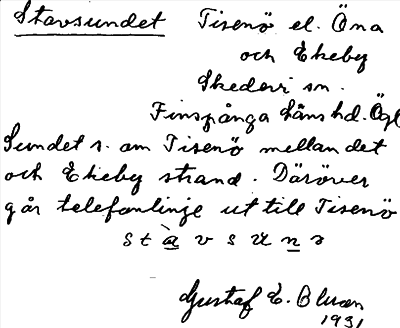 Stavsundet Tisenö el. Öna
och Ekeby
Skedevi sn.
Finspånga läns hd. Ögl
Sundet s. om Tisenö mellan det
och Ekeby strand. Däröver
går telefonlinje ut till Tisenö
Gustaf E. Bluan
1931